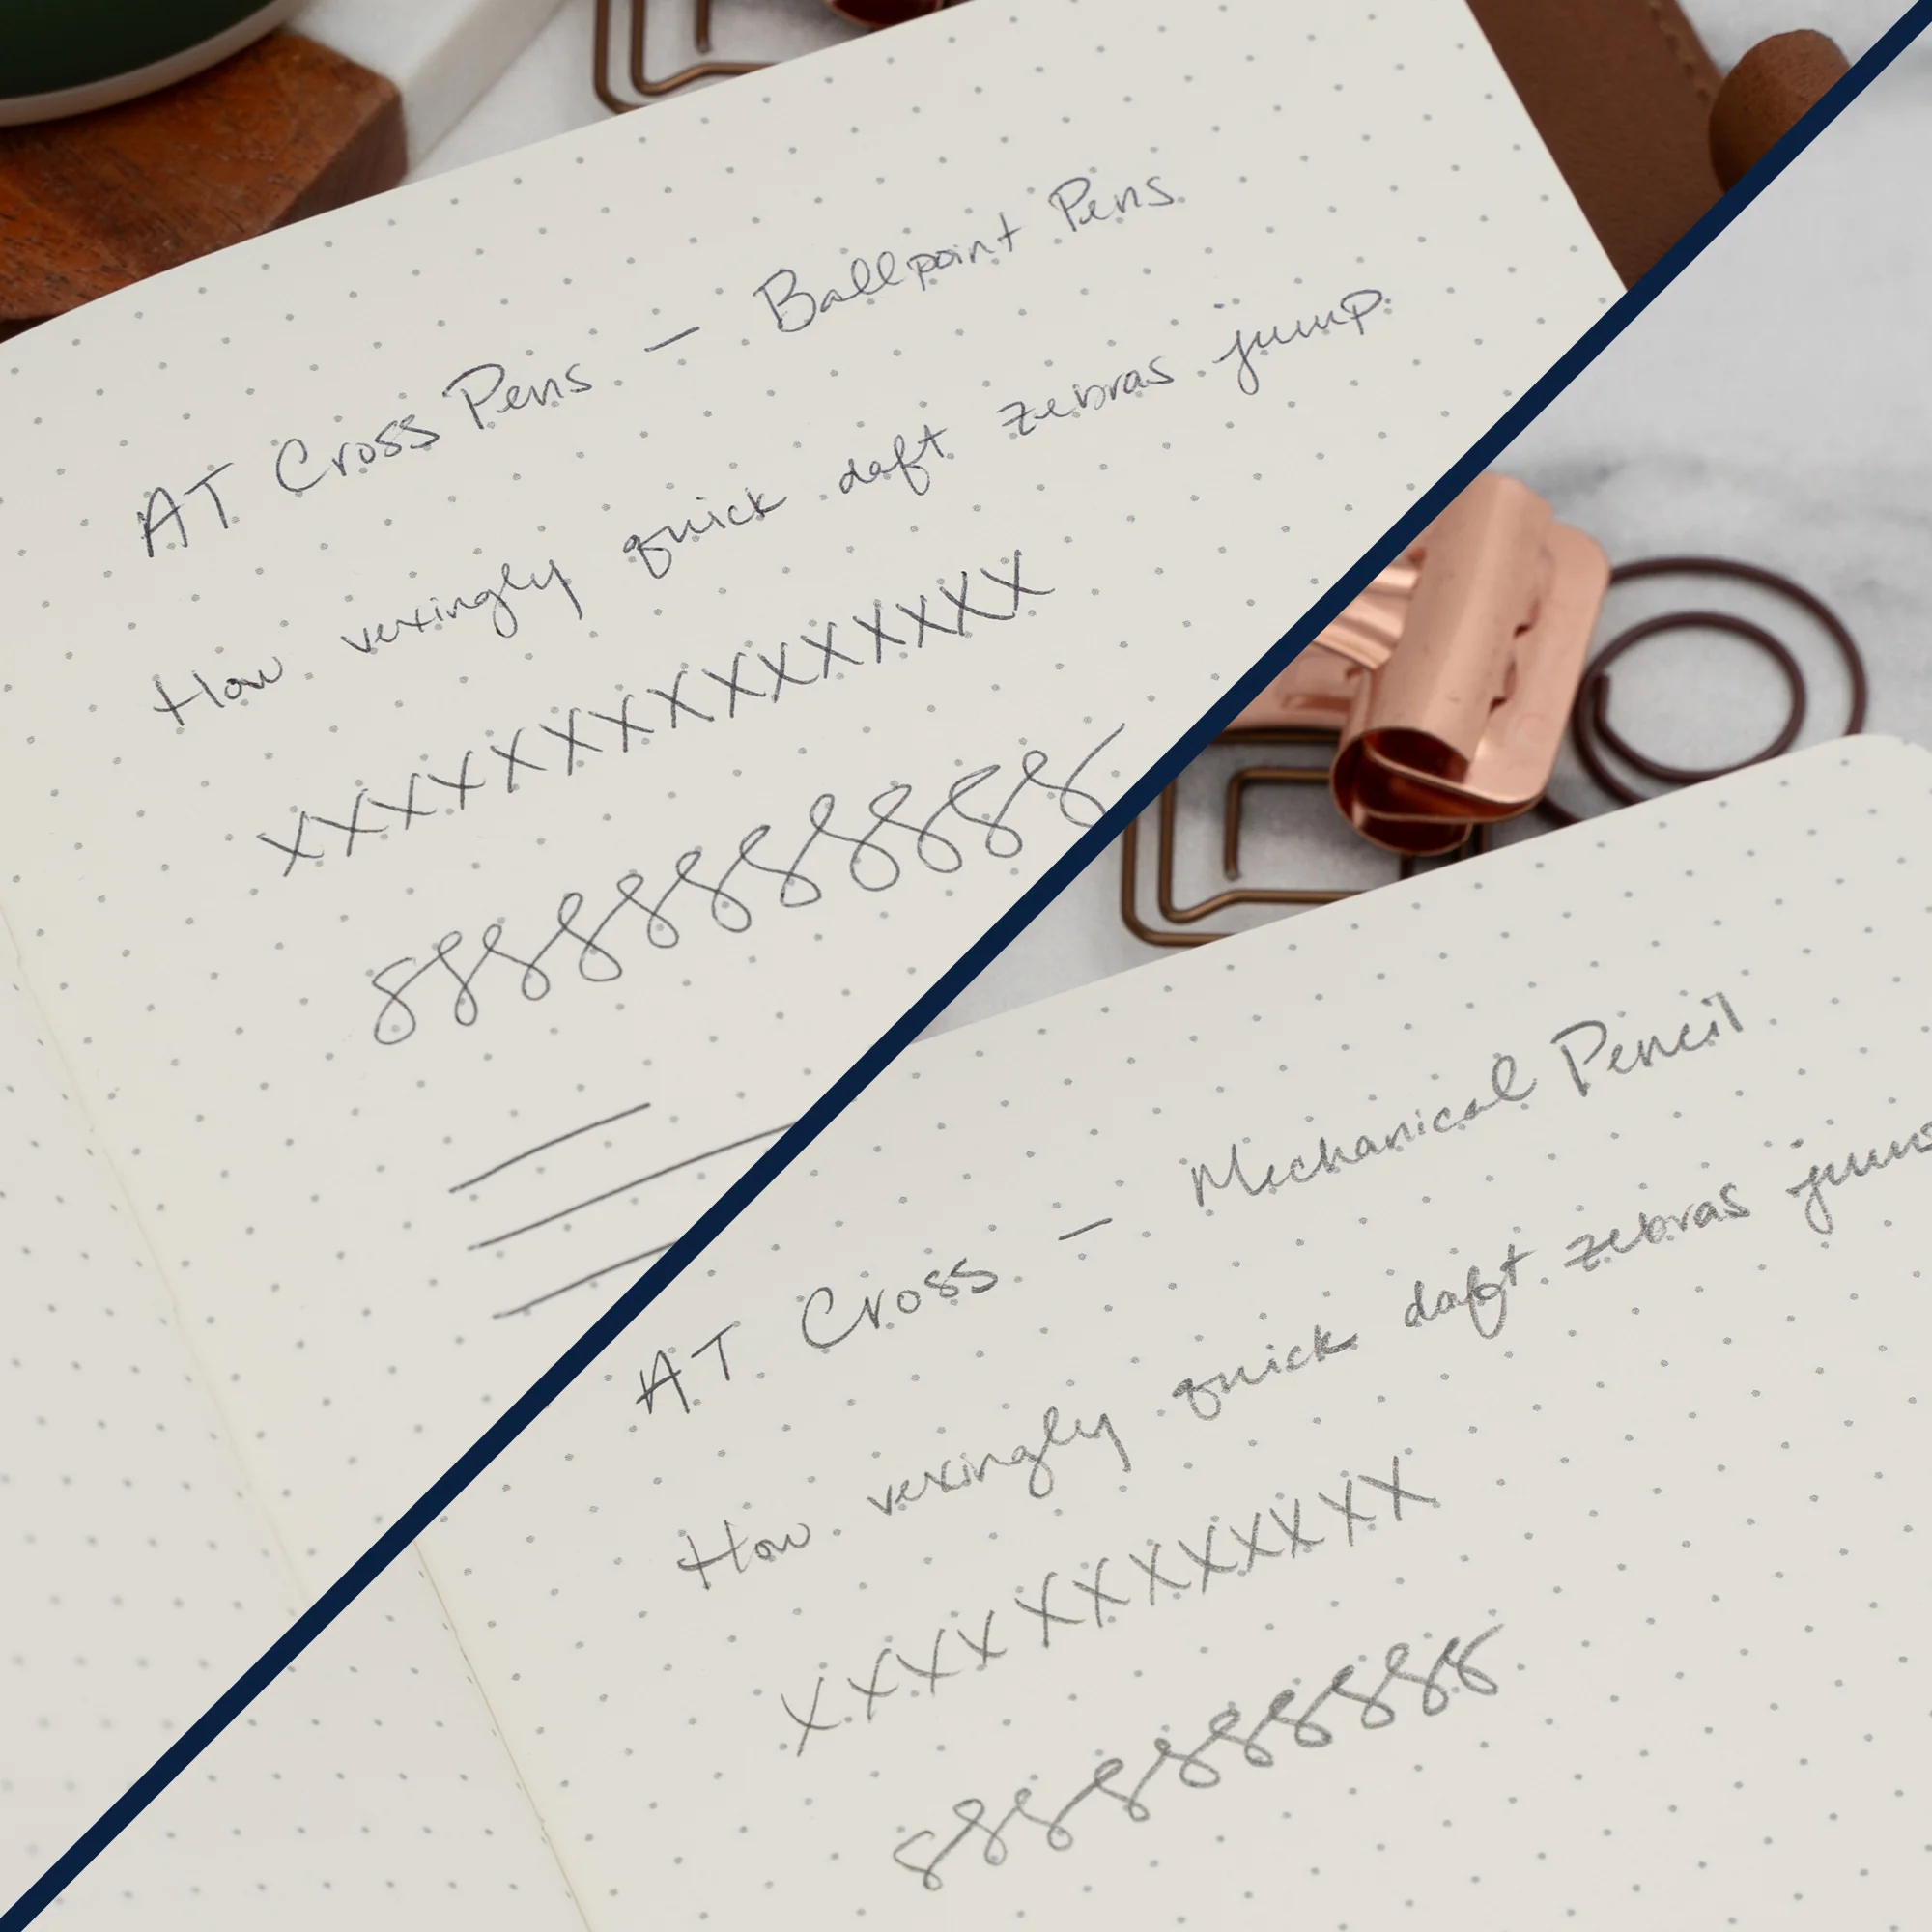 AT Cross Pens – Ballpoint Pens
How vexingly quick daft zebras jump
XXXXXXXXXXXXXX
88888888888
AT Cross – Mechanical Pencil
How vexingly quick daft zebras jum
XXXXXXXXXXXX
8888888888